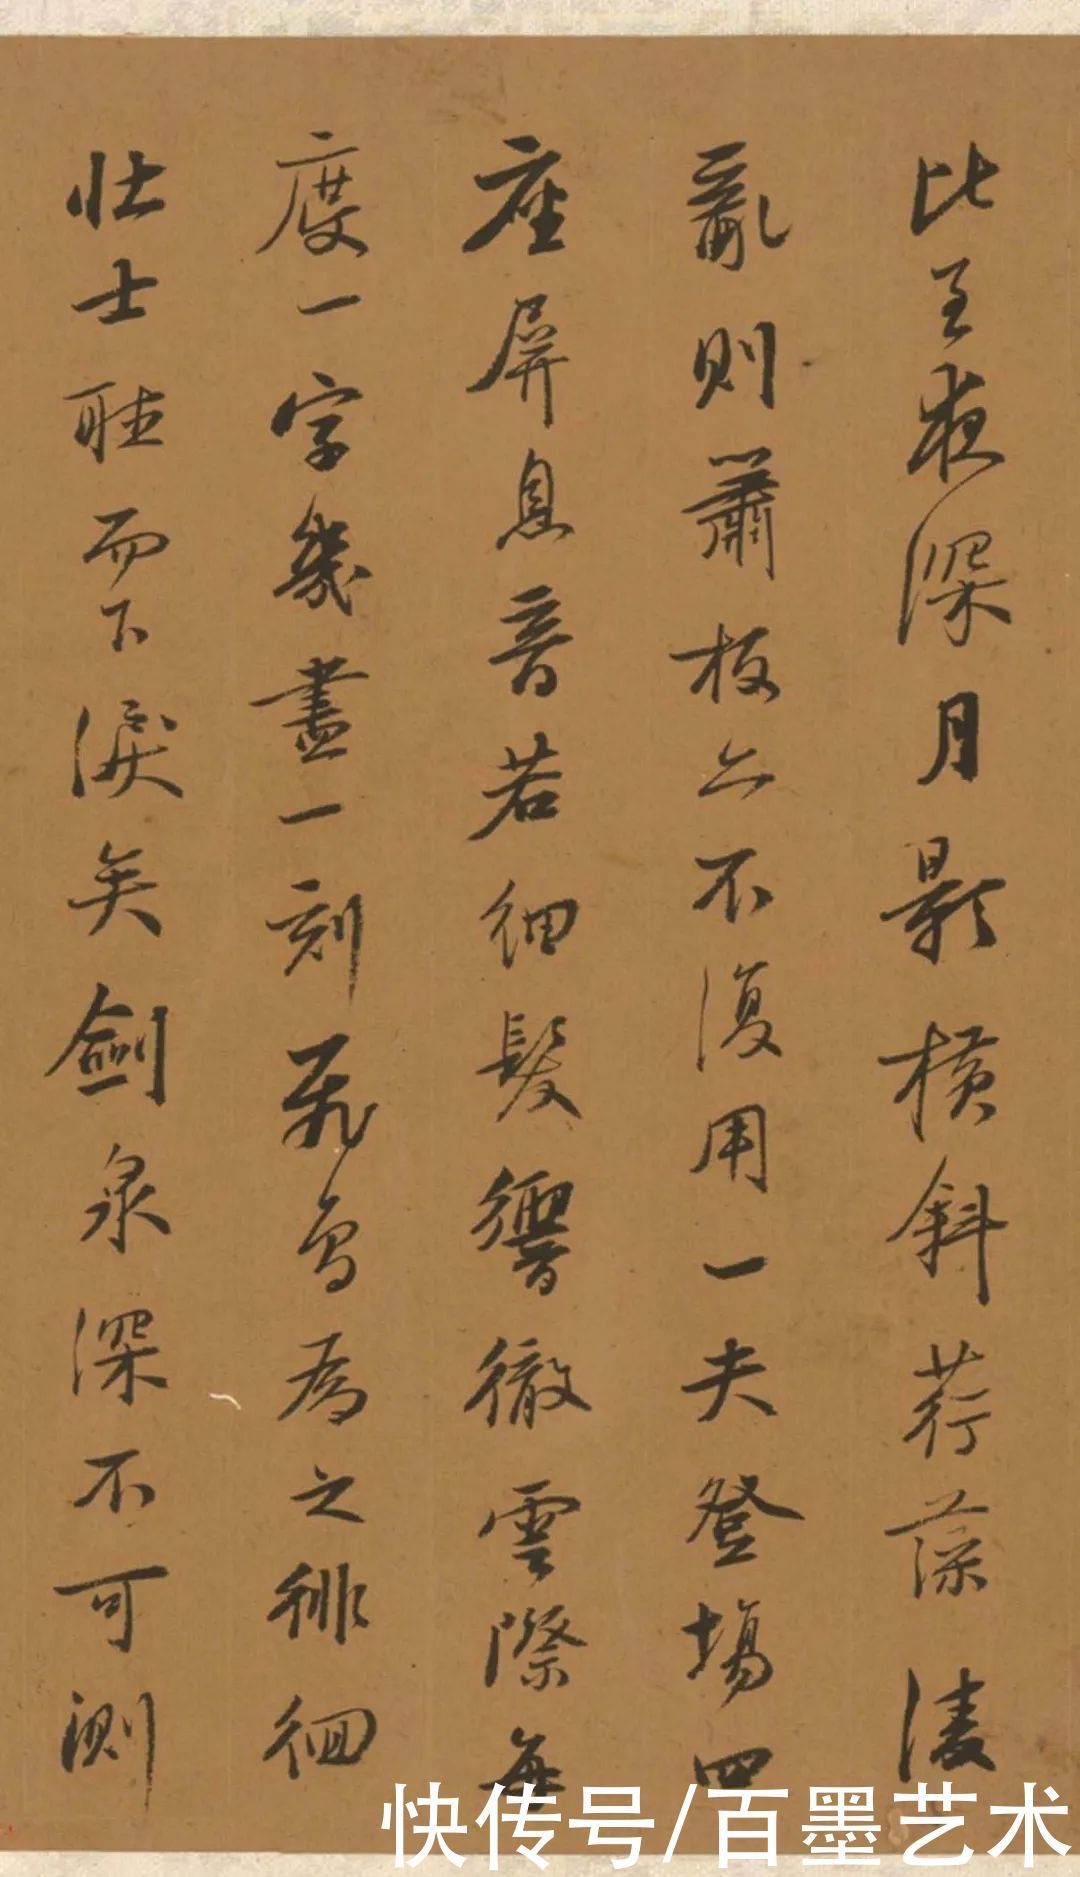 比至夜深月影橫斜荇藻凌
亂則簫板亦不復用一夫登場四
座屏息音若細髮響徹雲際每
度一字幾盡一刻飛鳥為之徘徊
壯士聽而下淚矣劍泉深不可測
快传号/百墨艺术